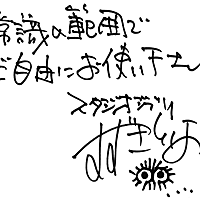 常識の範囲で
ご自由にお使い下さ
スタジオジブリ